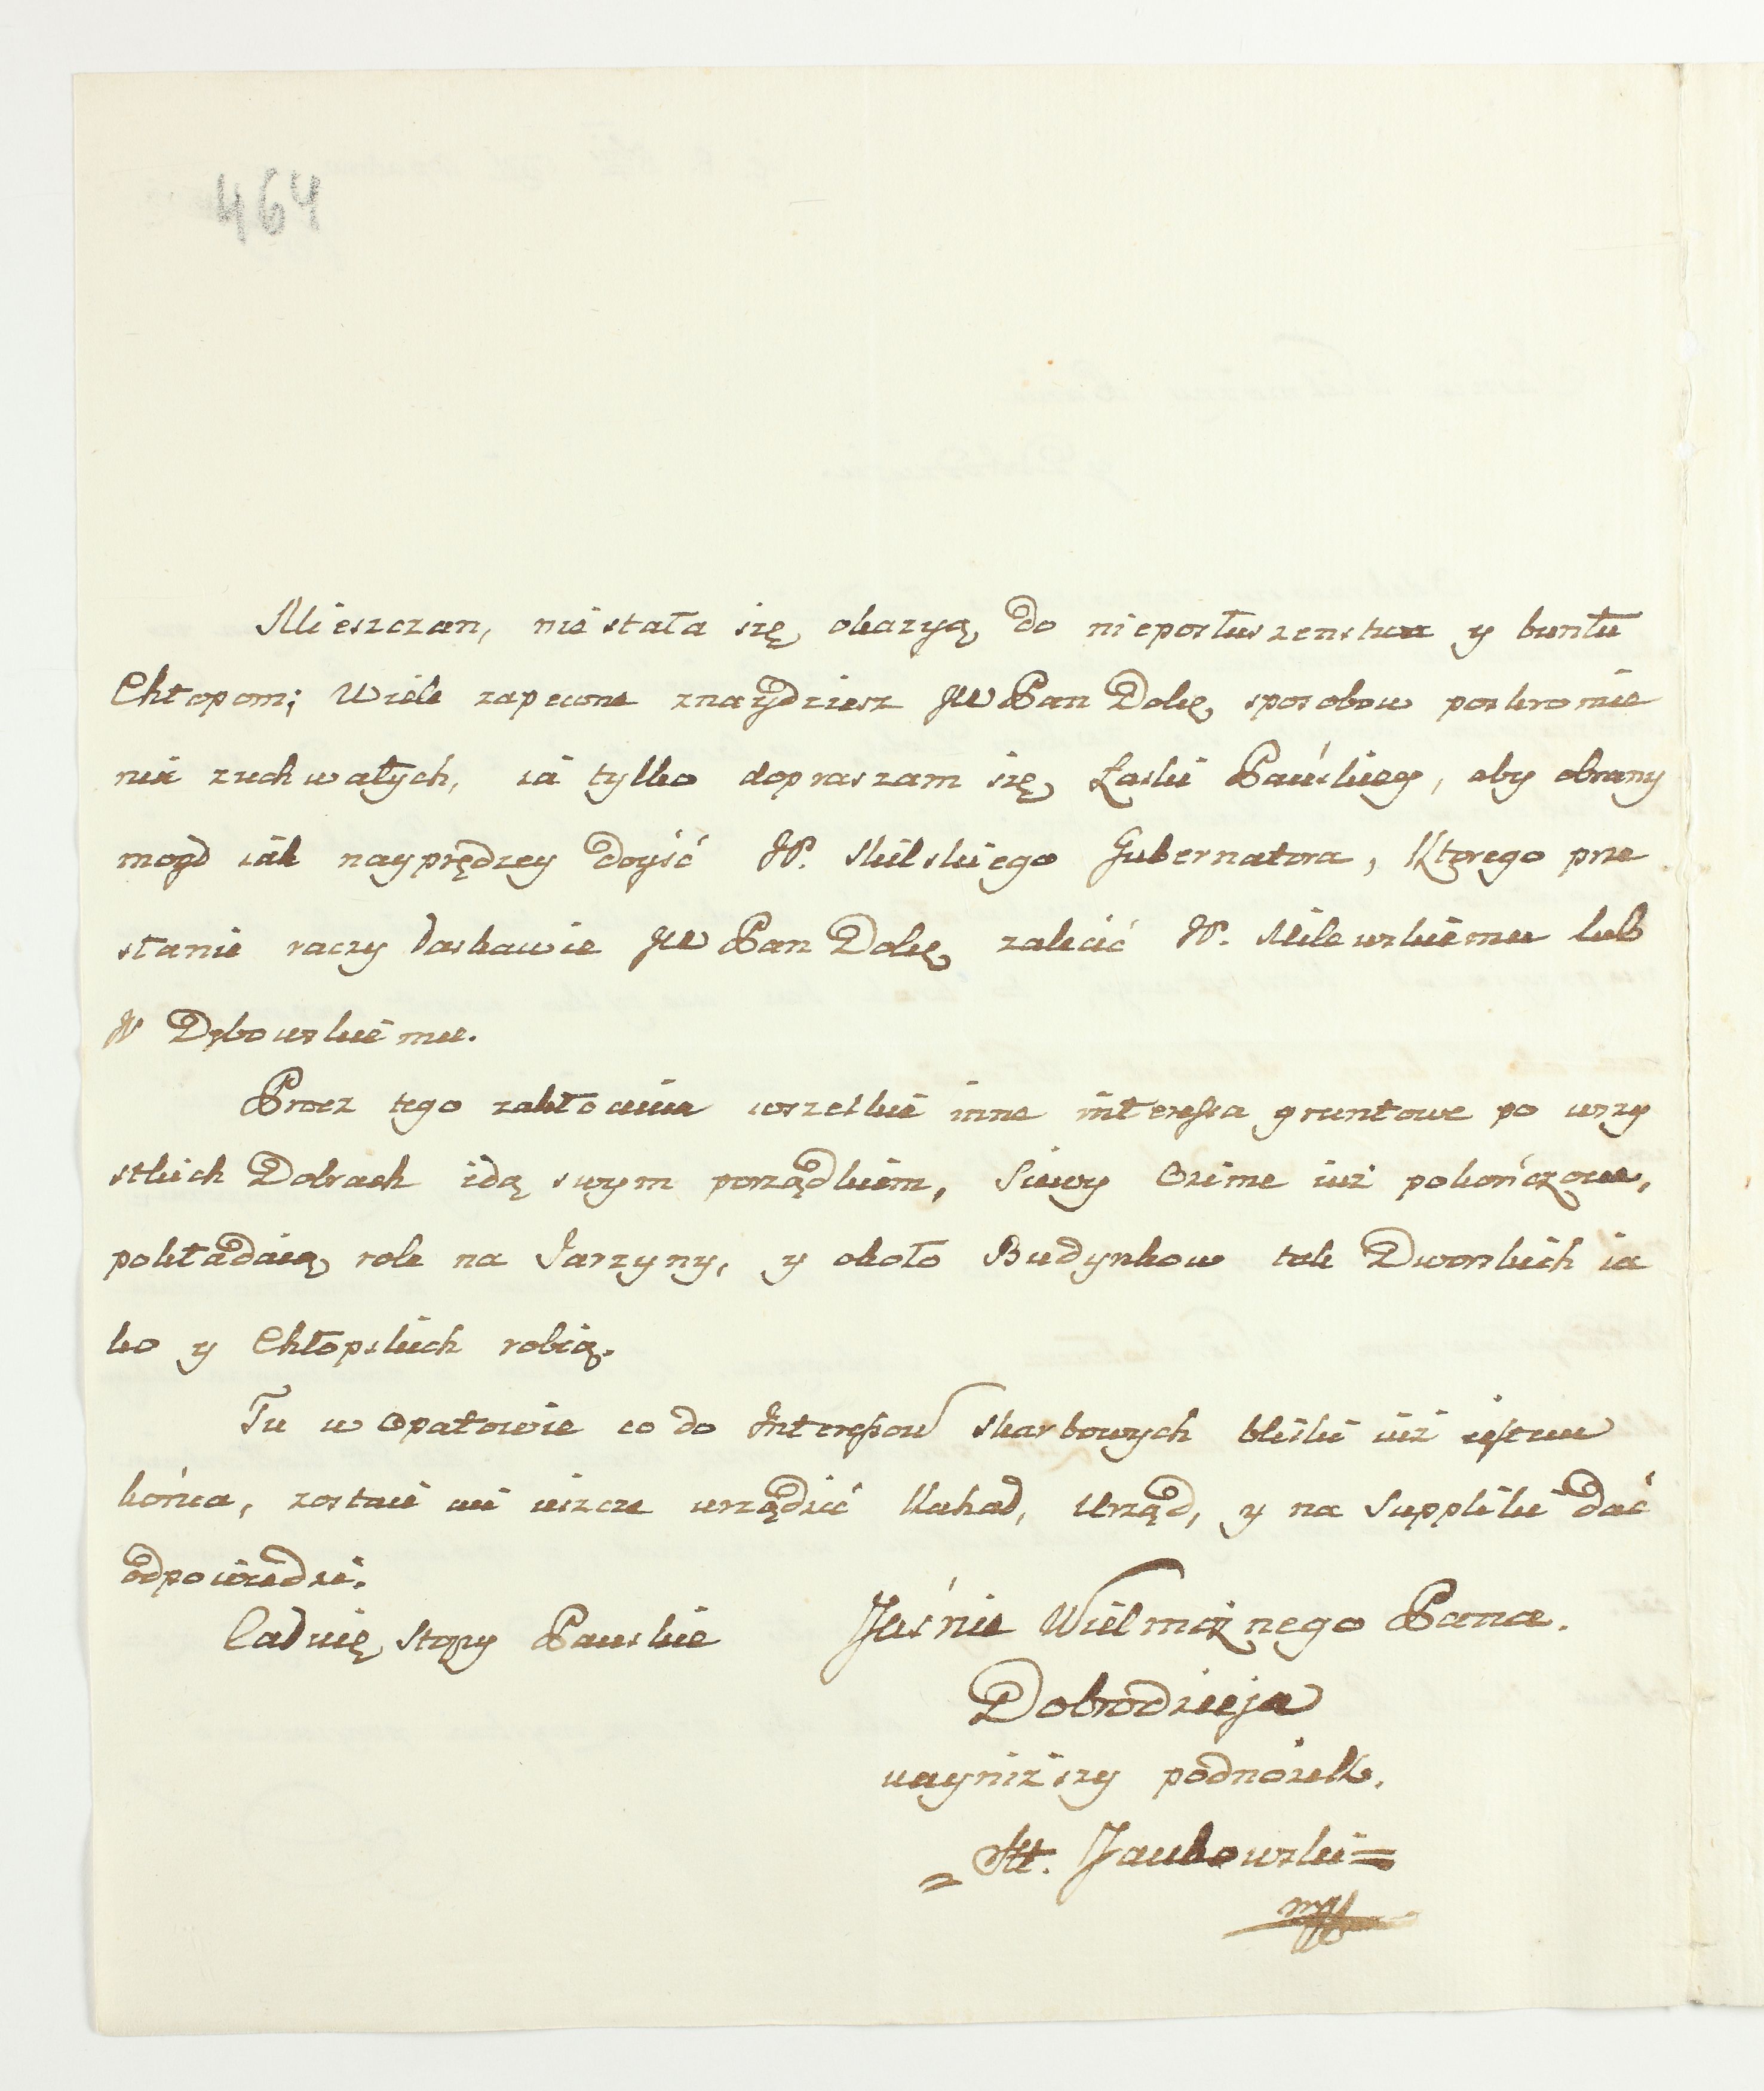 464
Mieszczan, nie stała się okazyą do nieposłuszenstwa y buntu
Chłopom; Wiele zapewne znaydziesz JW Pan Dobr. sposobow poskromie
nia zuchwałych, ia tylko dopraszam się Łaski Pańskiey, aby obrany
mogł iak nayprędzey doyść JP. Skilskiego Gubernatora, Ktorego prze
słanie raczy łaskawie JW Pan Dobr. zalecić JP. Milewskiemu lub
JP Dębowskiemu.
Procz tego zakłocenia wszelkie inne interessa gruntowe po wszy
stkich Dobrach idą swym porządkiem, Siewy Ozime iuż pokończone,
pokładaią role na Jarzyny, y około Budynkow tak Dworskich ia
ko y Chłopskich robią.
Tu w Opatowie co do Interessow skarbowych bliski iuż iestem
końca, zostaie mi ieszcze urządzić Kahał, Urząd, y na Suppliki dać
odpowiedzi.
Całuię Stopy Panskie Jaśnie Wielmożnego Pana.
Dobrodzieja
nayniższy podnożek.
Jankowski
mp